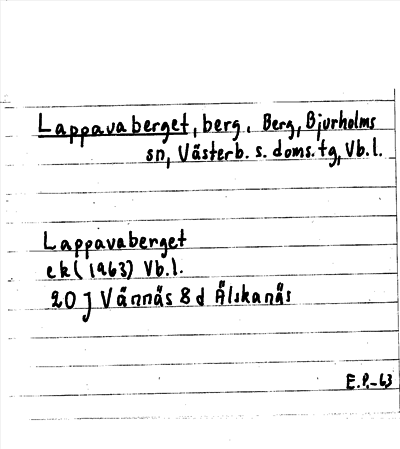 Lappavaberget, berg. Berg, Bjurholms
sn, Västerb. s. doms. tg, Vb.l.
Lappavaberget
ek (1963) Vb.l.
20 J Vännäs 8 d Älskanäs
E.P.-63